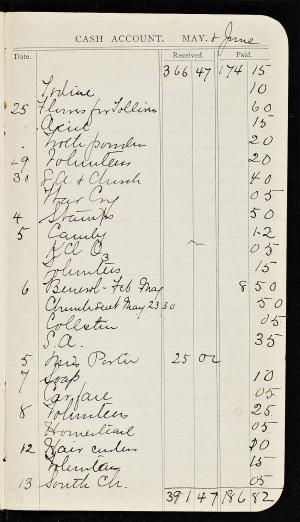 CASH ACCOUNT. MAY. & June
Date. Received. Paid.
366 47 174 15
Iodine 10
25 Flowers for 60
15
Tooth powder 20
29 Volunteers 20
30 S.A. & Church 40
War Cry 05
4 Stamps 50
5 Candy 12
K Cl O3 05
Volunteers 15
6 Benevol - Feb May 8 50
Church May 23 30 50
Collection 05
S.A. 35
5 Miss Porter 25 00
7 Soap 10
Car fare 05
8 Volunteers 25
Homestead 05
12 Hair 10
Volunteers 15
13 South Ch. 05
391 47 186 82